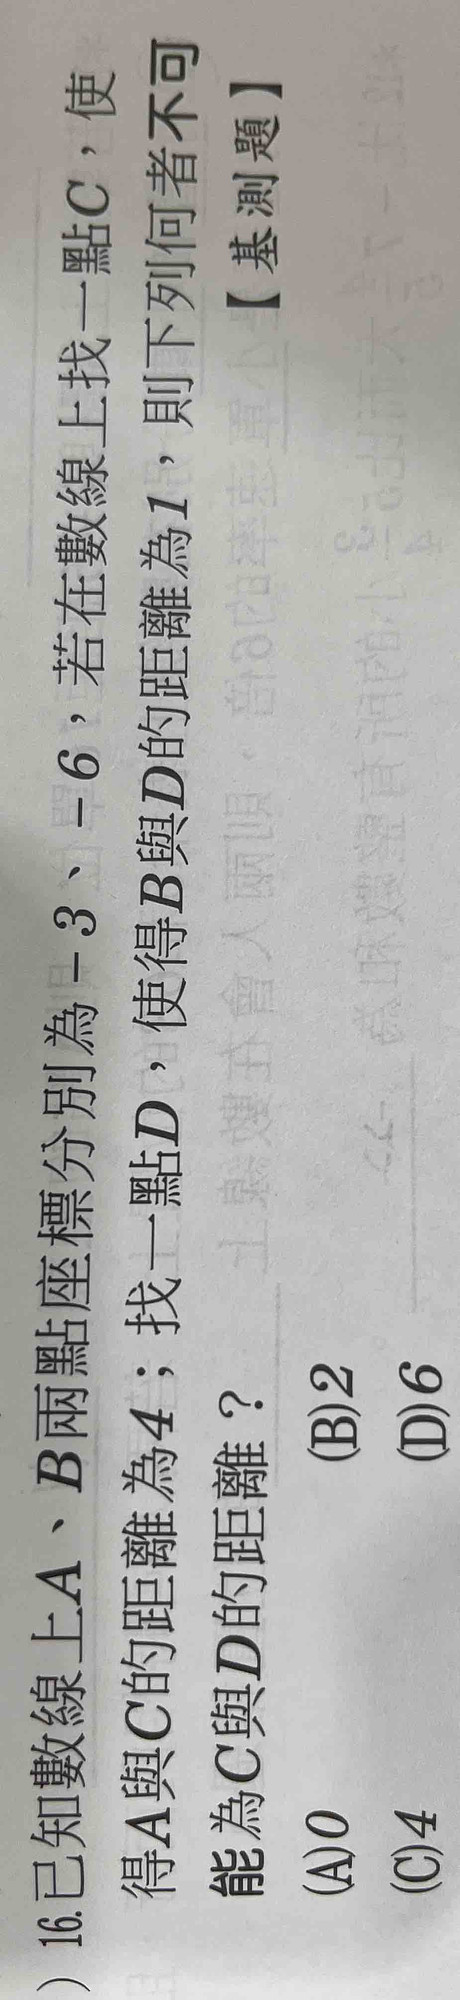 ) 16.已知數線上A、B兩點座標分別為－3、－6，若在數線上找一點C，使
得A與C的距離為4；找一點D，使得B與D的距離為1，則下列何者不可
能為C與D的距離？ 【基測題】
(A)0 (B)2
(C)4 (D)6